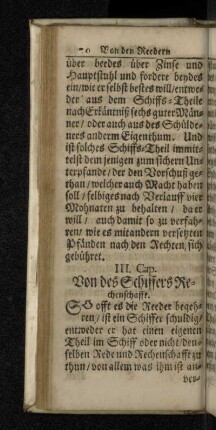 70 Von den Reedern
über beedes über Zinse und
Hauptstuhl und fordere beydes
ein/ wie er selbst bestes will/ entwe-
der aus dem Schiffs-Theile
nach Erkäntniß sechs guter Män-
ner/ oder auch aus des Schülde-
ners anderm Eigenthum. Und
ist solches Schiffs-Theil immit-
telst dem jenigen zum sichern Un-
terpfande/ der den Vorschuß ge-
than/ welcher auch Macht haben
soll/ selbiges nach Verlauff vier
Mohnaten zu behalten/ da er
will/ auch damit so zu verfah-
ren/ wie es mit andern versetzten
Pfänden nach den Rechten sich
gebühret.
III. Cap.
Von des Schiffers Re-
chenschafft.
So offt es die Reeder begeh-
ren/ ist ein Schiffer schuldig/
entweder er hat einen eigenen
Theil im Schiff oder nicht/ den-
selben Rede und Rechenschafft zu
thun/ von allem was ihm ist an-
ver-